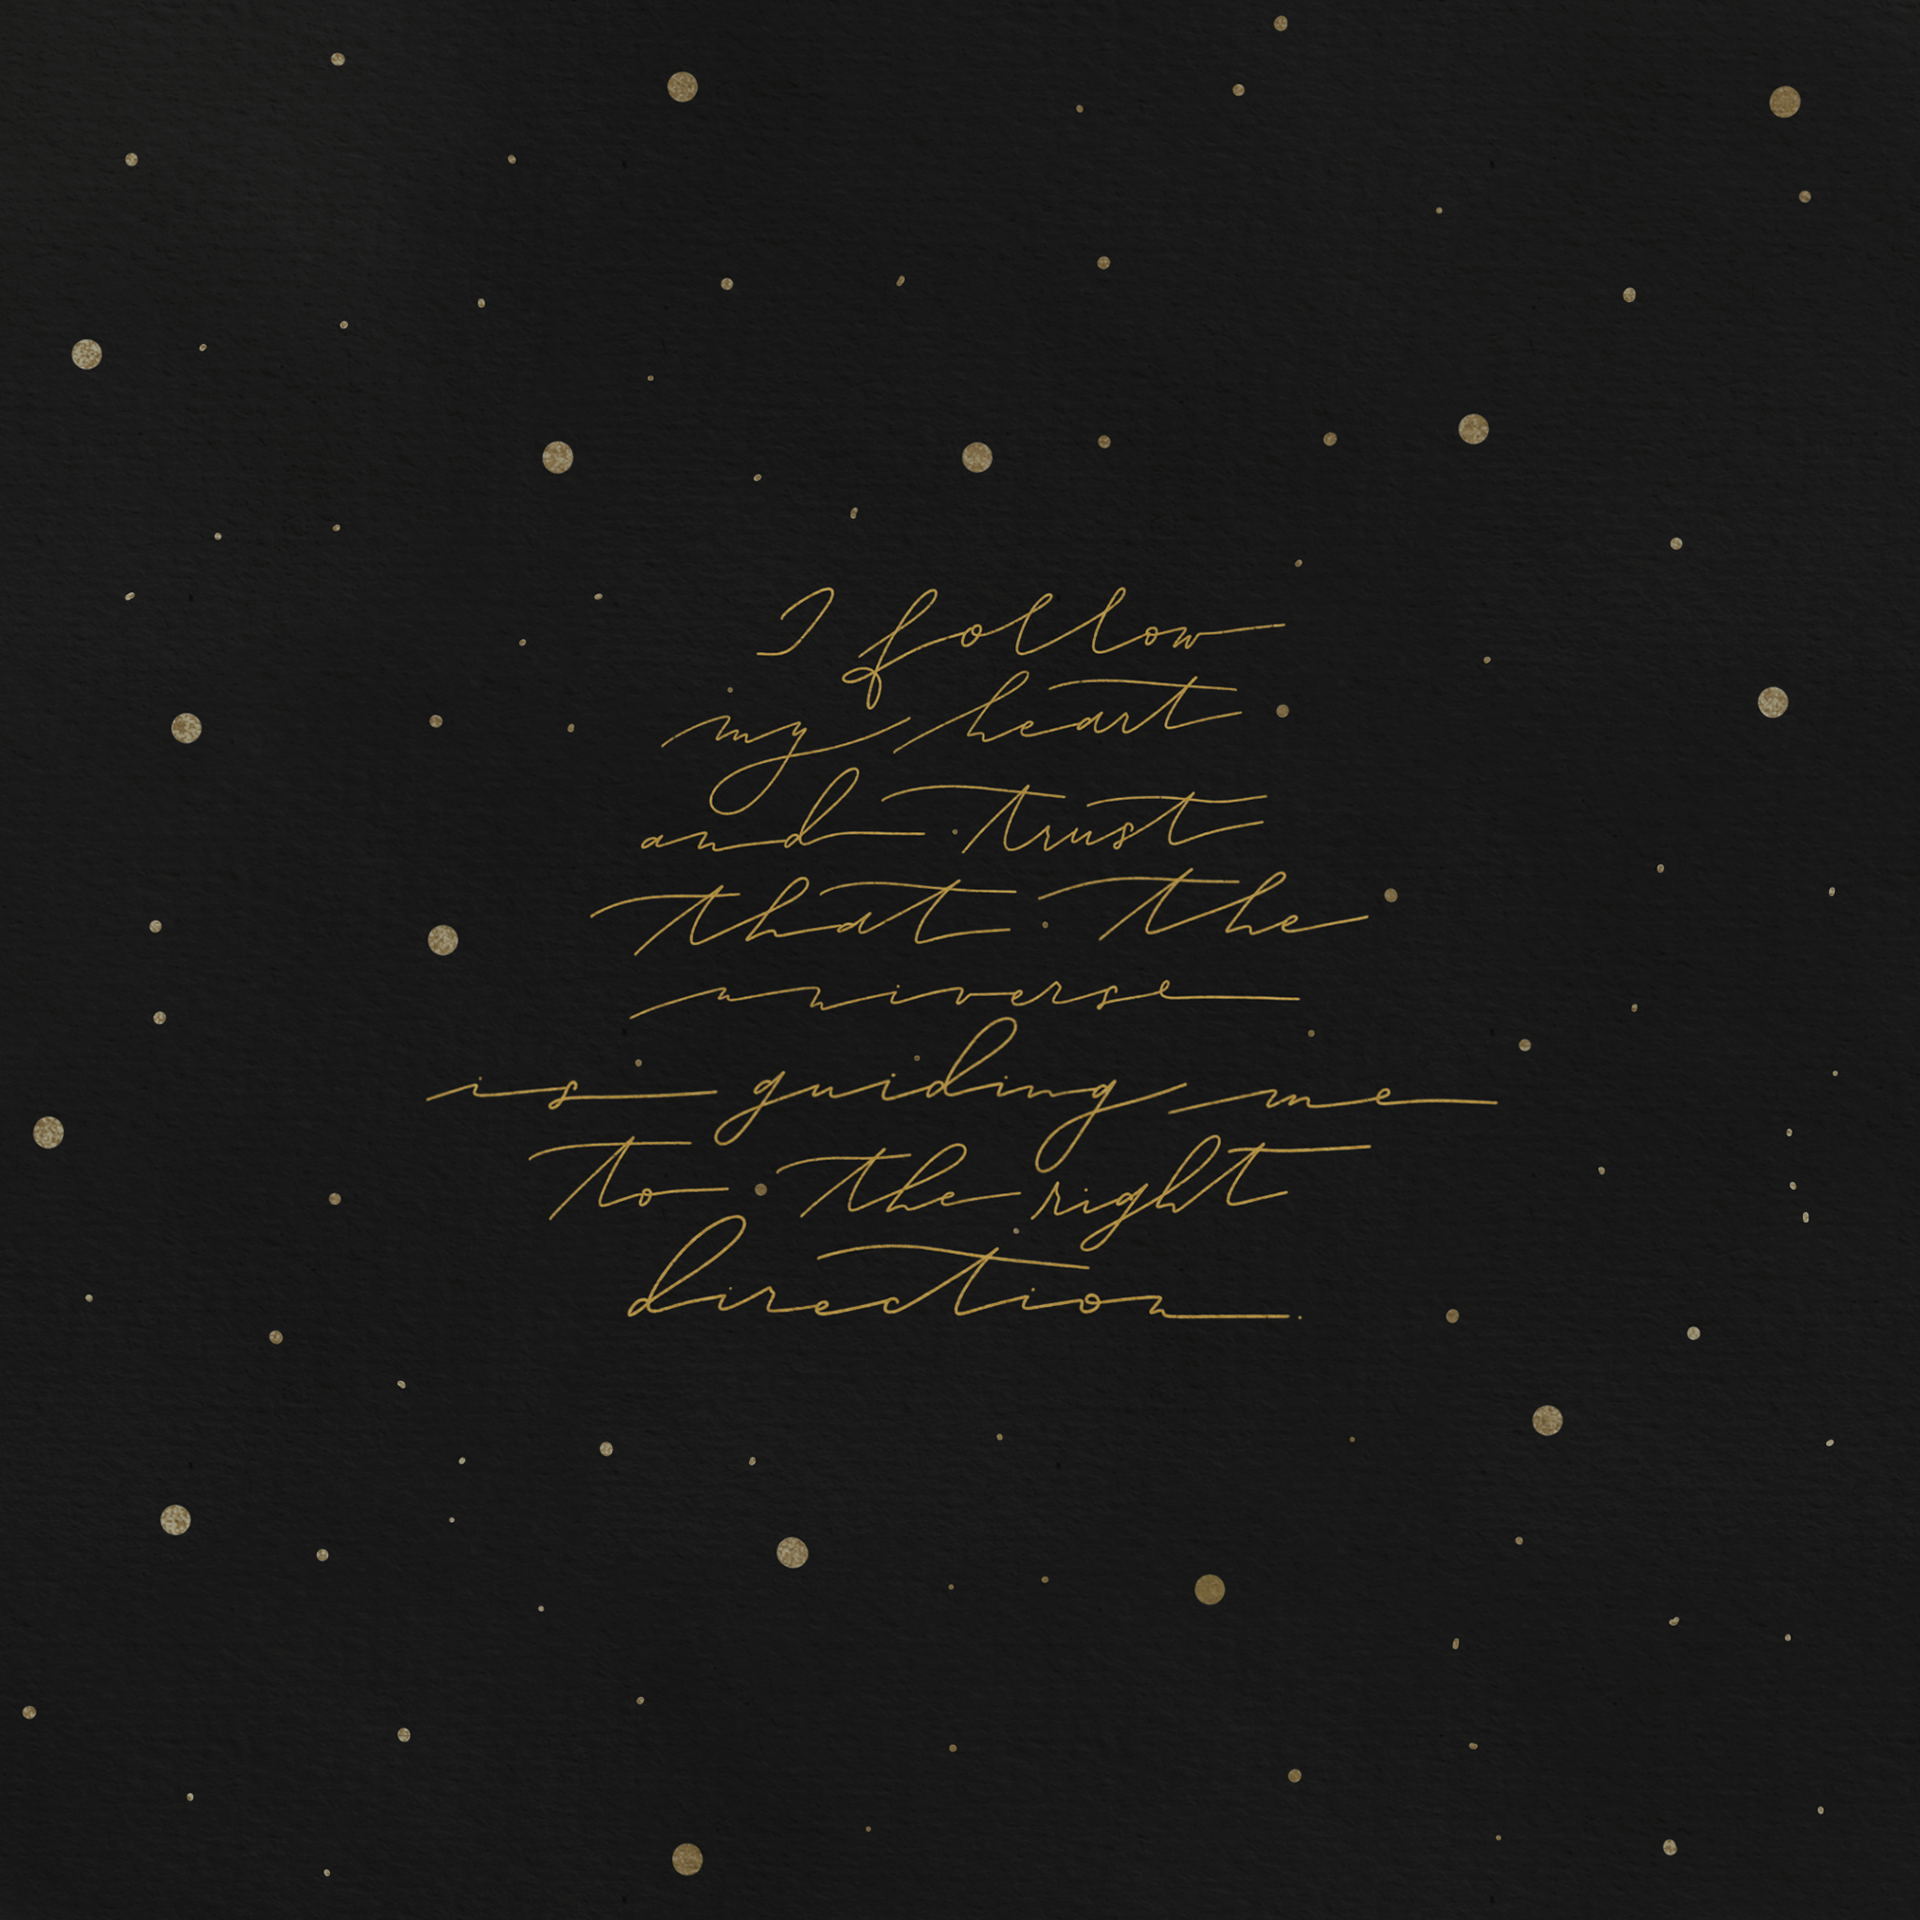 I follow
my heart
and trust
that the
universe
is guiding me
to the right
direction.